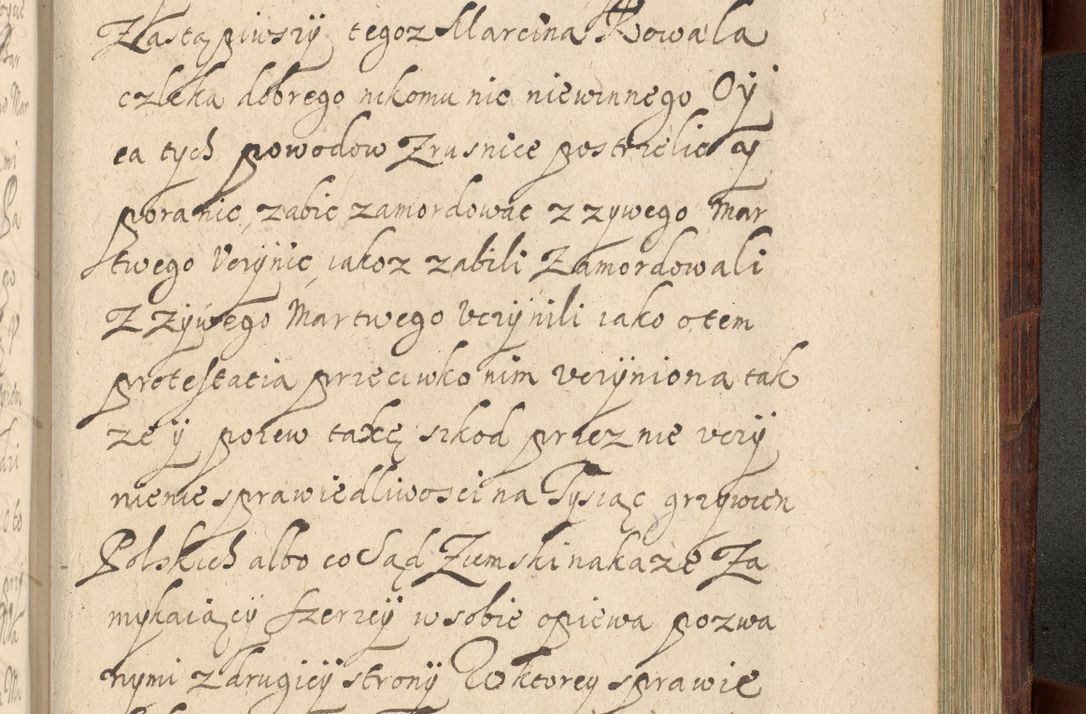 Zastąpiwszÿ tegoz Marcina Kowala
człeka dobrego nikomu nic niewinnego Oÿ
ca tych powodow Zrusnice postrzelic aÿ
poranic zabic zamordowac z zywego Mar
twego Vczÿnic iakoz zabili Zamordowali
Z Zÿwego Martwego Vczÿnili iako o tem
protestatia przeciwko nim vczÿniona tak
ze ÿ pozew taxę szkod przez nie vczÿ
nienie sprawiedliwosci na Tysiąc grzywien
Polskich albo co Sąd Ziemski nakaze Za
mykaiącÿ szerzeÿ w sobie opiewa pozwa
nymi z drugieÿ stronÿ W ktorey sprawie